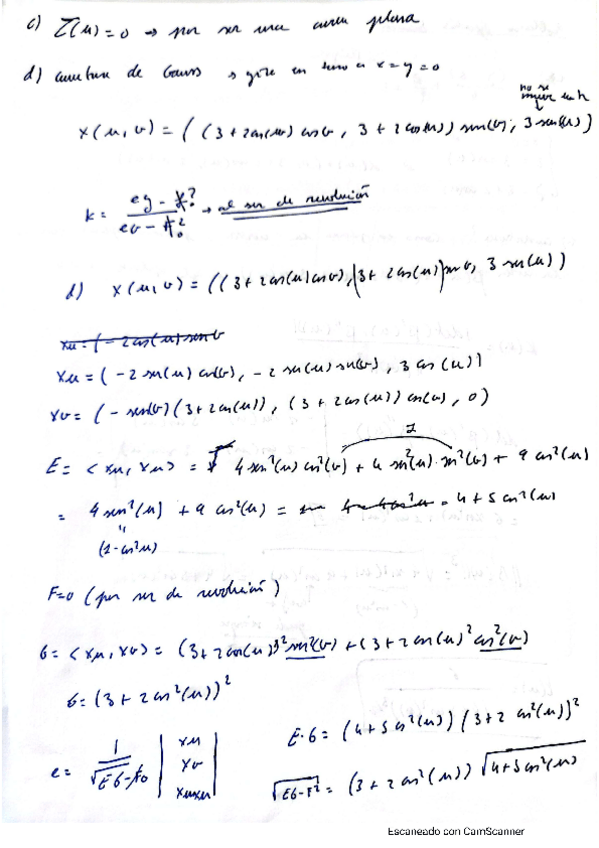 c) Z(u) = 0 → por ser una curva plana
d) curvatura de Gauss → gira en torno a x = y = 0
no se
mueve en h
x(u, v) = ((3 + 2cos(u)) cos v, 3 + 2 cos(u)) sen(v), 3 sen(u))
k = eg - f²/EG - F² → al ser de revolución
d) x(u, v) = ((3 + 2 cos(u)) cos(v), (3 + 2 cos(u)) sen v, 3 sen(u))
xu = (-2 sen(u) cos(v), -2 sen(u) sen(v), 3 cos(u))
xv = (-sen(v)(3 + 2cos(u)), (3 + 2 cos(u)) cos(v), 0)
1
E = <xu, xu> = 4 sen²(u) cos²(v) + 4 sen²(u) · sen²(v) + 9 cos²(u)
= 4 sen²(u) + 9 cos²(u) = 4 + 5 cos²(u)
(1 - cos²u)
F = 0 (por ser de revolución)
G = <xu, xv> = (3 + 2cos(u))² sen²(v) + (3 + 2 cos(u))² cos²(v)
G = (3 + 2 cos²(u))²
E·G = (4 + 5 cos²(u)) (3 + 2 cos²(u))²
e = 1/√EG - F² | xu xv xuxu |
√EG - F² = (3 + 2 cos²(u)) √4 + 5 cos²(u)
Escaneado con CamScanner